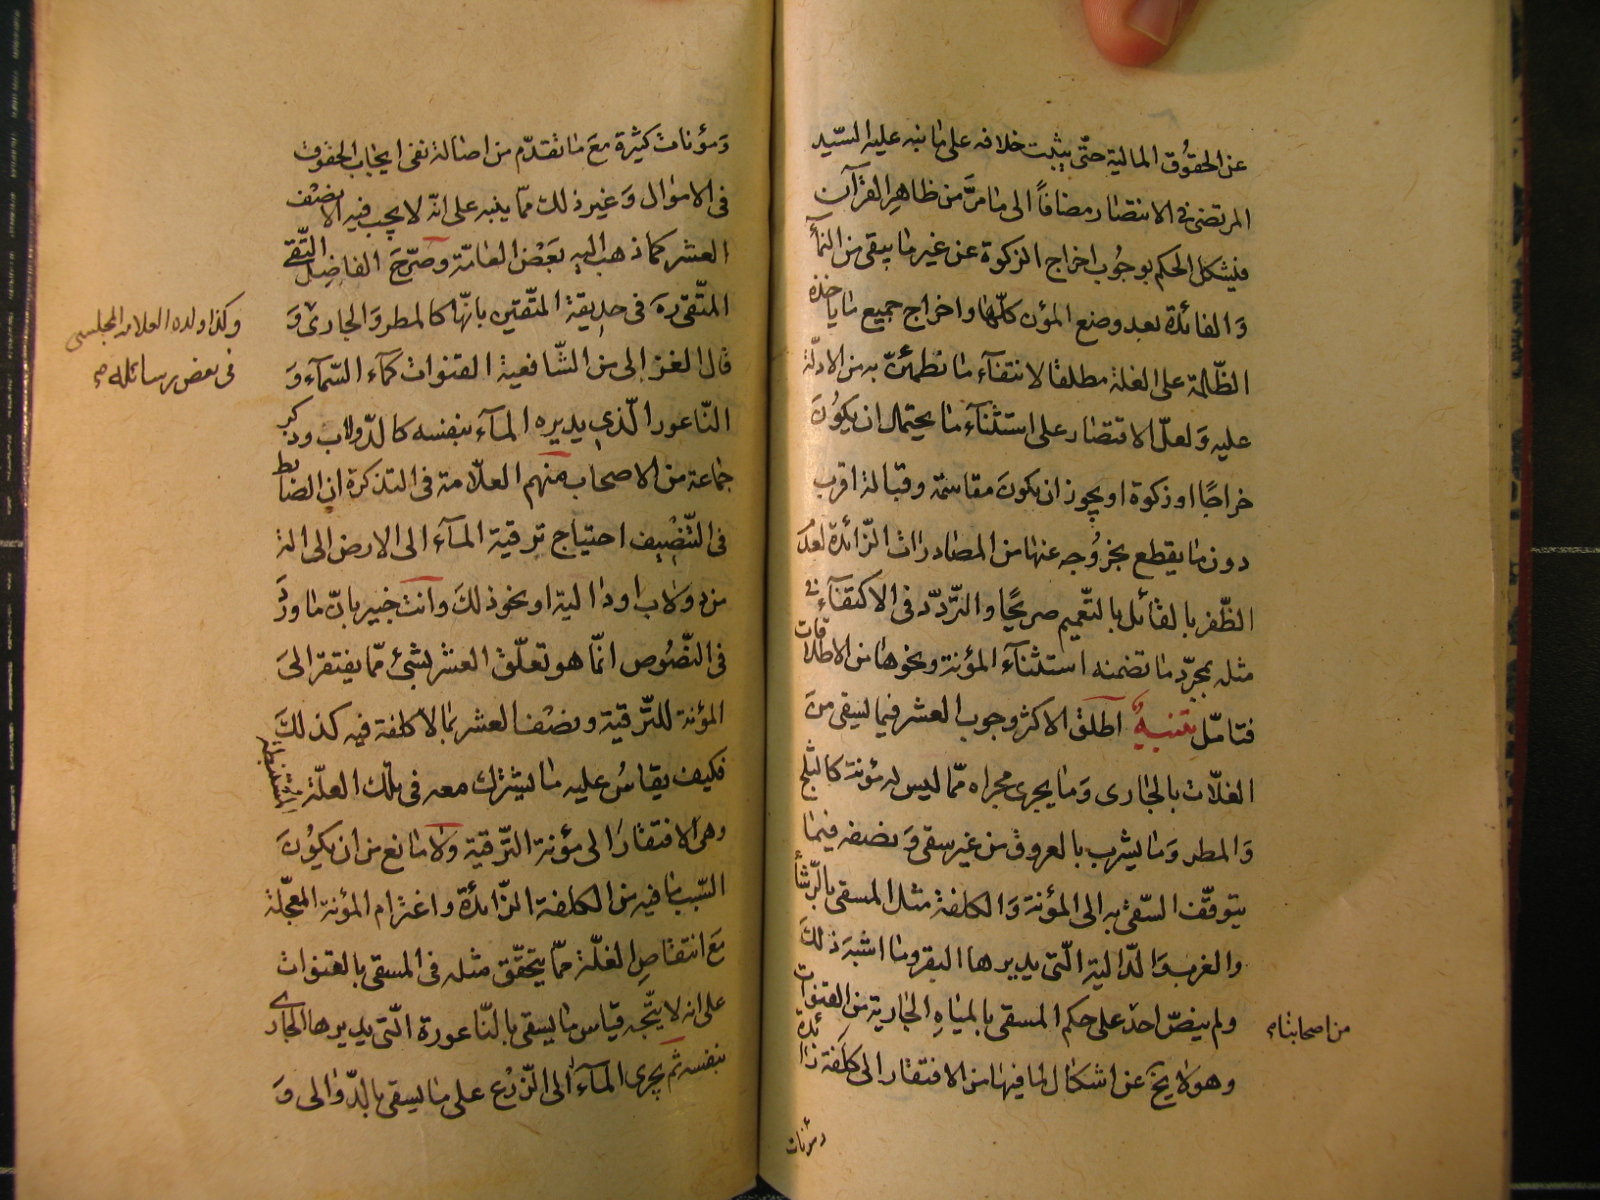 عن الحقوق المالية حتّى يثبت خلافه على ما نبه عليه السّيد
المرتضى في الانتصار مضافاً الى ما مرَّ من ظاهر القرآن
فيشكل الحكم بوجوب اخراج الزكوة عن غير ما يبقى من النمآء
وَالفائدة بعد وضع المؤن كلّها واخراج جميع ما ياخذه
الظّالمة على الغلة مطلقا لانتفآء ما تطمئنّ به من الادلّة
عليه وَلعلّ الاقتصار على استثنآء ما يحتمل ان يكونَ
خراجًا او زكوة او يجوز ان يكونَ مقاسمة وقبالة اقرب
دون ما يقطع بخروجه عنها من المصادرات الزّائدة لعدم
الظّفر بالقائل بالتّعميم صريحًا والتّردّد في الاكتفآء في
مثله بمجرّد ما تضمنه استثنآء المؤنة ونحوها من الاطلاقات
فتامّل تنبيهٌ اطلق الاكثر وجوب العشر فيما يسقى منَ
الغلّات بالجارى وَما يجرى مجراه ممّا ليس له مؤنة كالثلج
وَالمطر وَما يشرب بالعروق من غير سقى وَنصفه فيما
يتوقّف السّقى به الى المؤنة وَالكلفة مثل المسقى بالرّشأ
والغرب وَالدّالية الّتى يديرها البقر وما اشبهَ ذلكَ
ولم ينصّ احدٌ على حكم المسقى بالمياهِ الجارية من القنوات
من اصحابنا
وهو لا يخ عن اشكال لما فيها من الافتقار الى كلفة زائدة
ومؤنات
وَمؤنات كثيرة معَ ما تقدّم من اصالة نفى ايجاب الحقوق
فى الاموال وَغير ذلك ممّا ينبه على انّه لا يجب فيه الا نصْف
العشر كما ذهب اليه بَعْض العامّة وصَرّحَ الفاضِل التّقى
المتّقى ره فى حديقة المتّقين بانّها كالمطر وَالجارى وَ
وكذا ولده العلامه المجلسى
فى بعض رسائله
قال الغزالى من الشّافعية القنوات كمآء السّمآء وَ
النّاعور الّذي يديره المآء بنفسه كالدّولاب وذكر
جماعة من الاصحاب منهم العلّامة فى التذكرة ان الضابط
فى التّنصْيف احتياج ترقية المآء الى الارض الى الة
من دولاب او دالية او نحو ذلكَ وانت خبير بانّ ما وردَ
فى النّصُوص انّما هو تعلّق العشر بشئ ممّا يفتقر الىَ
المؤنة للتّرقية ونصْف العشر بما لا كلفة فيه كذلكَ
فكيف يقاسُ عليه ما يشترك معه فى تلك العلّة
وهى الافتقار الى مؤنة التّرقية ولا مانع من ان يكونَ
السّبب ما فيه من الكلفة الزّائدة واغترام المؤنة المعجّلة
معَ انتقاصِ الغلّة ممّا يتحقّق مثله فى المسقى بالقنوات
على انه لا يتّجه قياس ما يسقى بالنّاعورة الّتى يديرها الجارى
بنفسه ثم يجرى المآء الى الزّرع على ما يسقى بالدّوالى وَ